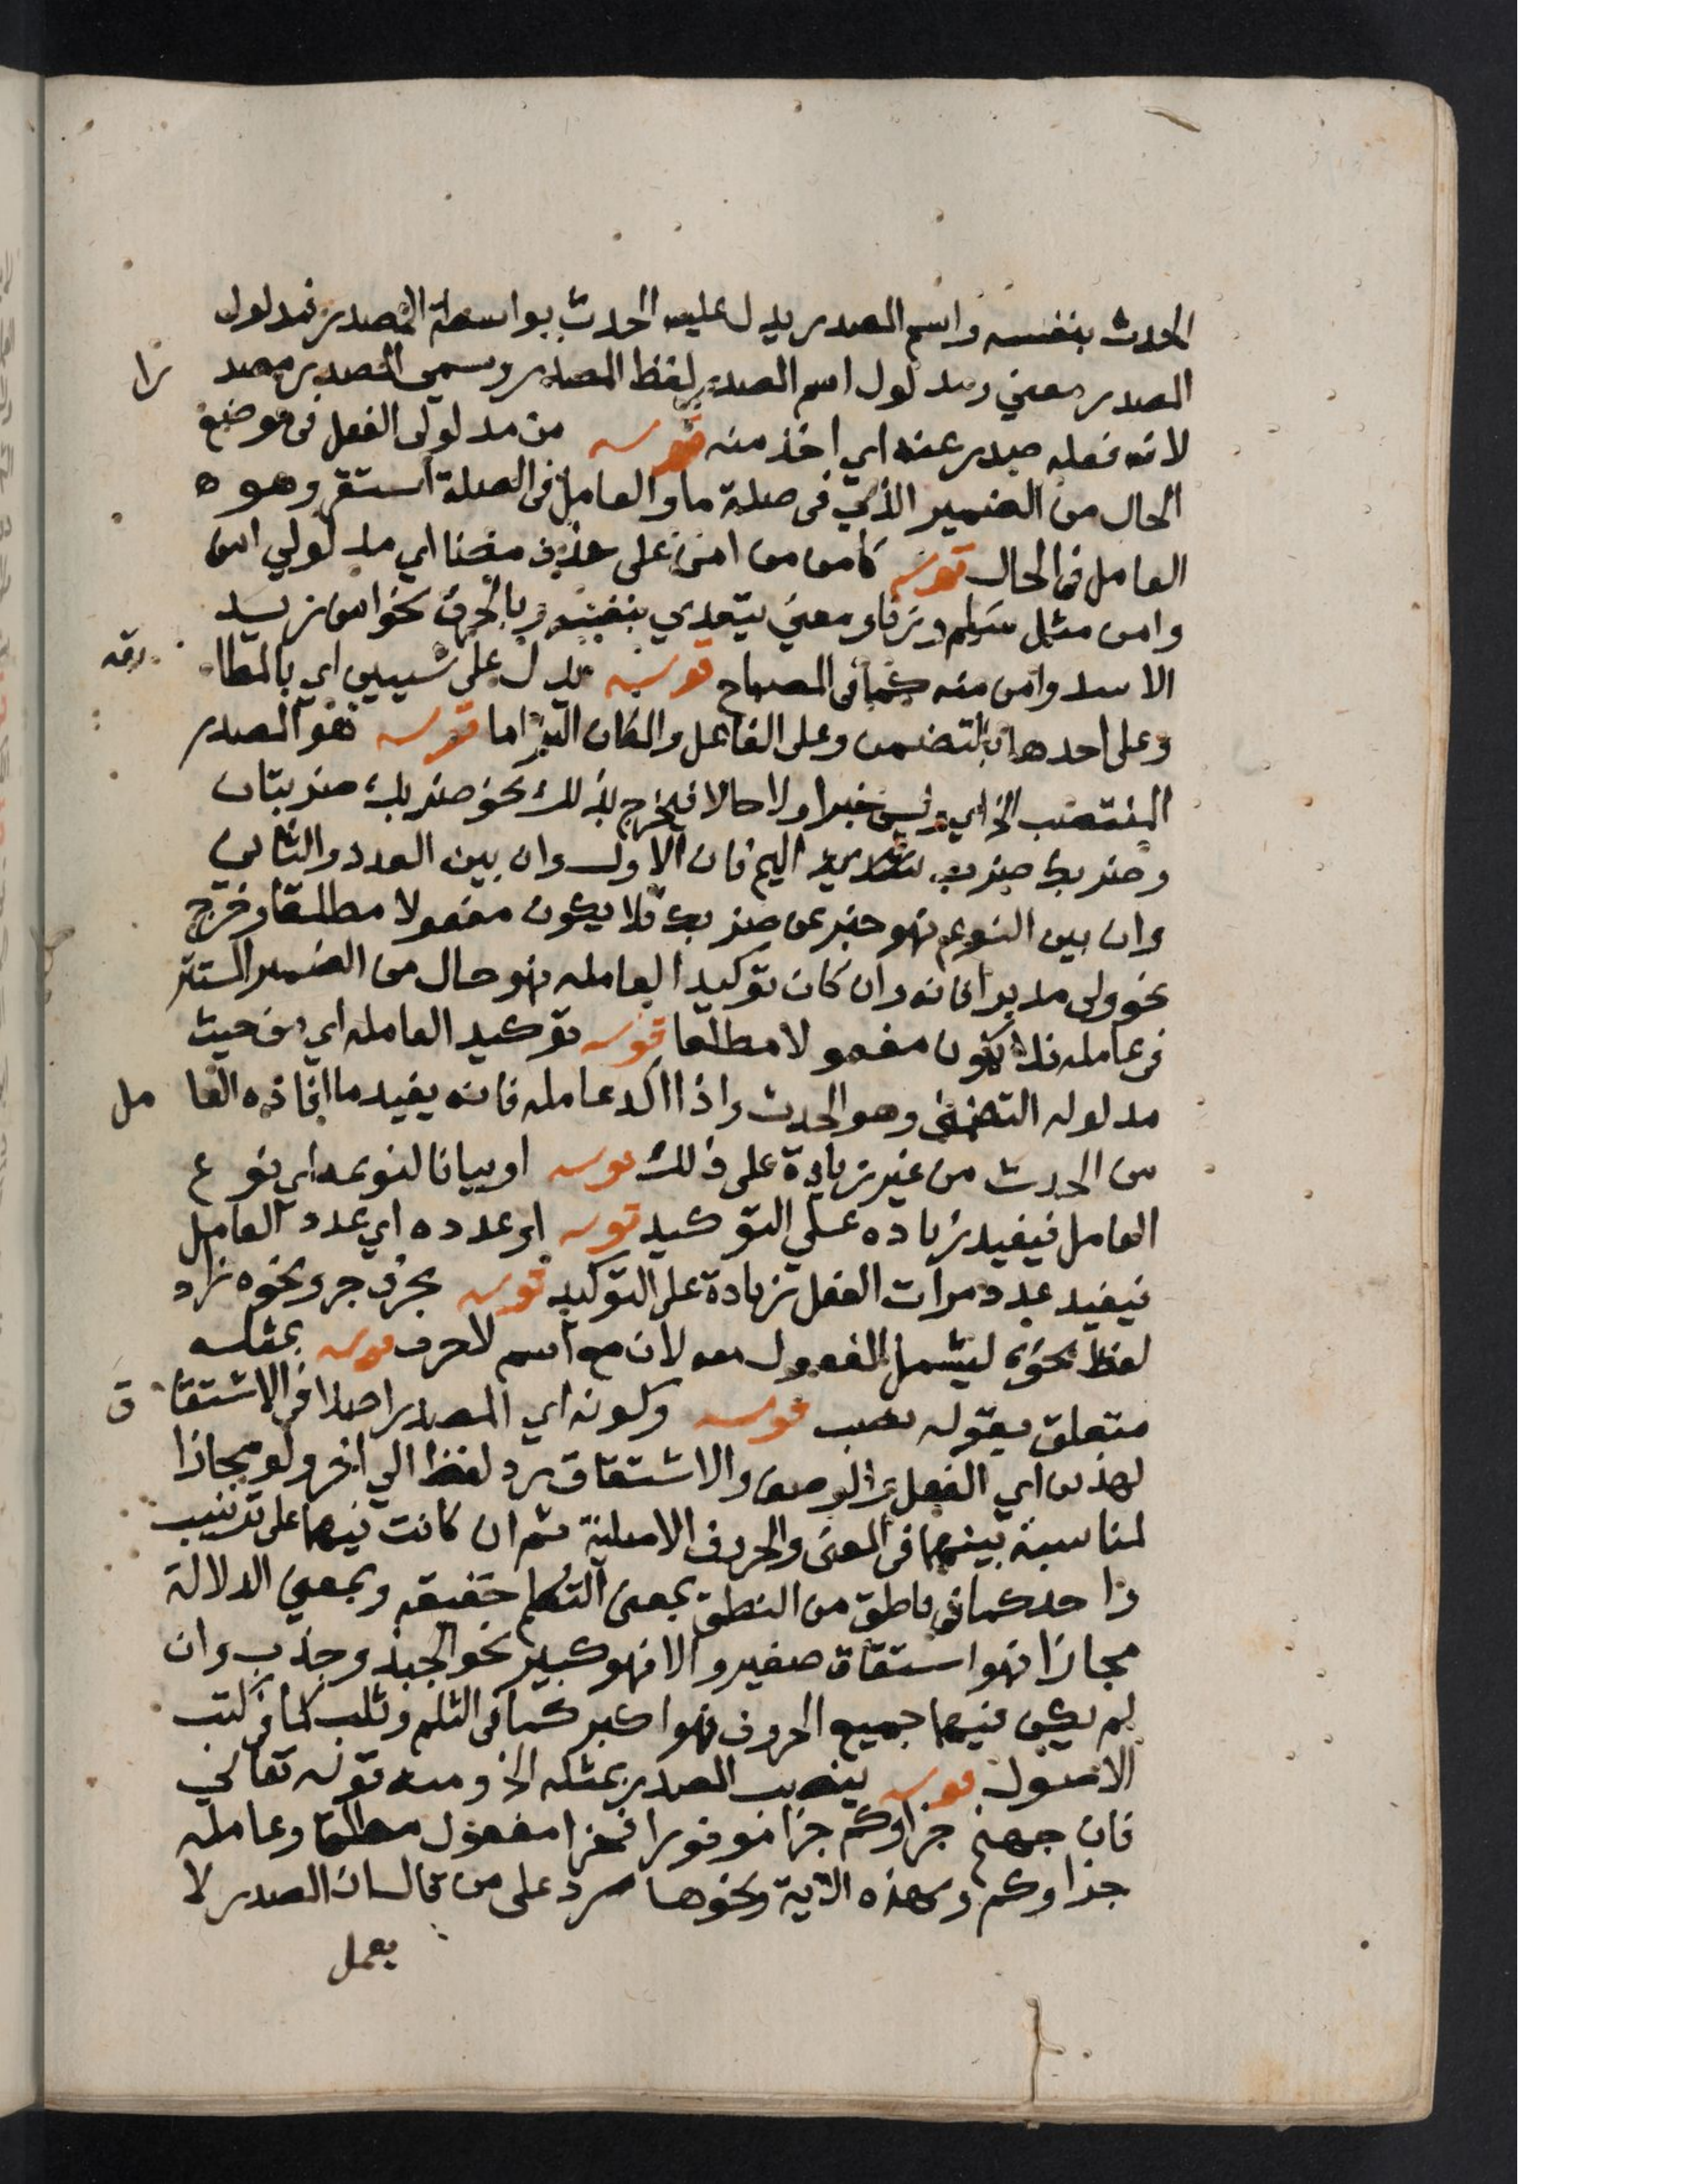 الحدث بنفسه واسم المصدر يدل عليه الحدث بواسطة المصدر فمدلول
المصدر معني ومدلول اسم المصدر لفظ المصدر وسمي المصدر مصد را
لان فعله صدر عنه اي اخذ منه قوله من مدلولي الفعل في موضع
الحال من الضمير الذي في صلة ما والعامل في الصلة استقر وهو ه
العامل في الحال قوله كامن من امن علي حذف مضاف اي مدلولي امن
وامن مثل سلم وزنا ومعني يتعدي بنفسه وبالحرف نحو امن زيد
الاسد وامن منه كما في المصباح قوله يدل علي شيبين اي بالمطا بقه
وعلي احدها بالتضمن وعلي الفاعل والمكان التزاما قوله هو المصدر
المنتصب الخ اي وليس خبرا ولا حالا فيخرج بذلك نحو ضربك ضربتان
وضربك ضرب اليم فان الاول وان بين العدد والثاني
وان بين النوع فهو خبر عن ضربك فلا يكون مفعولا مطلقا وخرج
نحو ولي مدبرا فانه وان كان توكيدا لعامله فهو حال من الضمير المستتر
في عامله فلا يكون مفعولا مطلقا قوله توكيد العامله اي من حيث
مدلوله التضمني وهو الحدث واذا اكد عامله فانه يفيد ما افاده العا مل
من الحدث من غير زيادة علي ذلك قوله او بيانا لنوعه اي نوع
العامل فيفيد زياده علي التوكيد قوله او عدده اي عدد العامل
فيفيد عدد مرات الفعل زيادة علي التوكيد قوله بحرف جر ونحوه زاد
لفظ نحوه ليشمل المفعول معه لان مع اسم لا حرف قوله بمثله
متعلق بقوله نصب قوله وكونه اي المصدر اصلا في الاشتقا ق
لهذين اي الفعل والوصف والاشتقاق رد لفظ الي اخر ولو مجازا
لمناسبة بينهما في المعني والحروف الاصلية ثم ان كانت فيهما علي ترتيب
واحد كما في ناطق من النطق بمعني التكلم حقيقه وبمعني الدلالة
مجازا فهو اشتقاق صغير والا فهو كبير نحو الجبذ وجذب وان
لم يكن فيهما جميع الحروف فهو اكبر كما في الثلم وثلب كما في كتب
الاصول قوله ينصب المصدر بمثله الخ ومنه قوله تعالي
فان جهنم جزاوكم جزا موفورا فجزا مفعول مطلق وعامله
جزاوكم وبهذه الاية ونحوها يرد علي من قال ان المصدر لا
يعمل